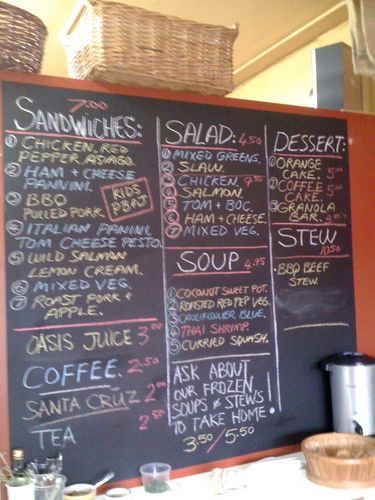 7.00
SANDWICHES:
① CHICKEN, RED
PEPPER, ASIAGO.
② HAM + CHEESE
PANNINI.
③ BBQ
PULLED PORK
KIDS
PB+J
④ ITALIAN PANINI,
TOM CHEESE PESTO.
⑤ WILD SALMON
LEMON CREAM.
⑥ MIXED VEG.
⑦ ROAST PORK +
APPLE.
OASIS JUICE 3.00
COFFEE. 2.50
SANTA CRUZ 2.00
TEA 2.50
SALAD: 4.50
① MIXED GREENS.
② SLAW.
③ CHICKEN. 9.50
④ SALMON.
⑤ TOM + BOC.
⑥ HAM + CHEESE.
⑦ MIXED VEG.
SOUP 4.95
① COCONUT SWEET POT.
② ROASTED RED PEP VEG.
③ CAULIFLOWER BLUE.
④ THAI SHRIMP.
⑤ CURRIED SQUASH.
ASK ABOUT
OUR FROZEN
SOUPS & STEWS
TO TAKE HOME.
3.50/5.50
DESSERT:
① ORANGE
CAKE. 5.00
② COFFEE
CAKE. 5.00
③ GRANOLA
BAR.
STEW
10.50
• BBQ BEEF
STEW.